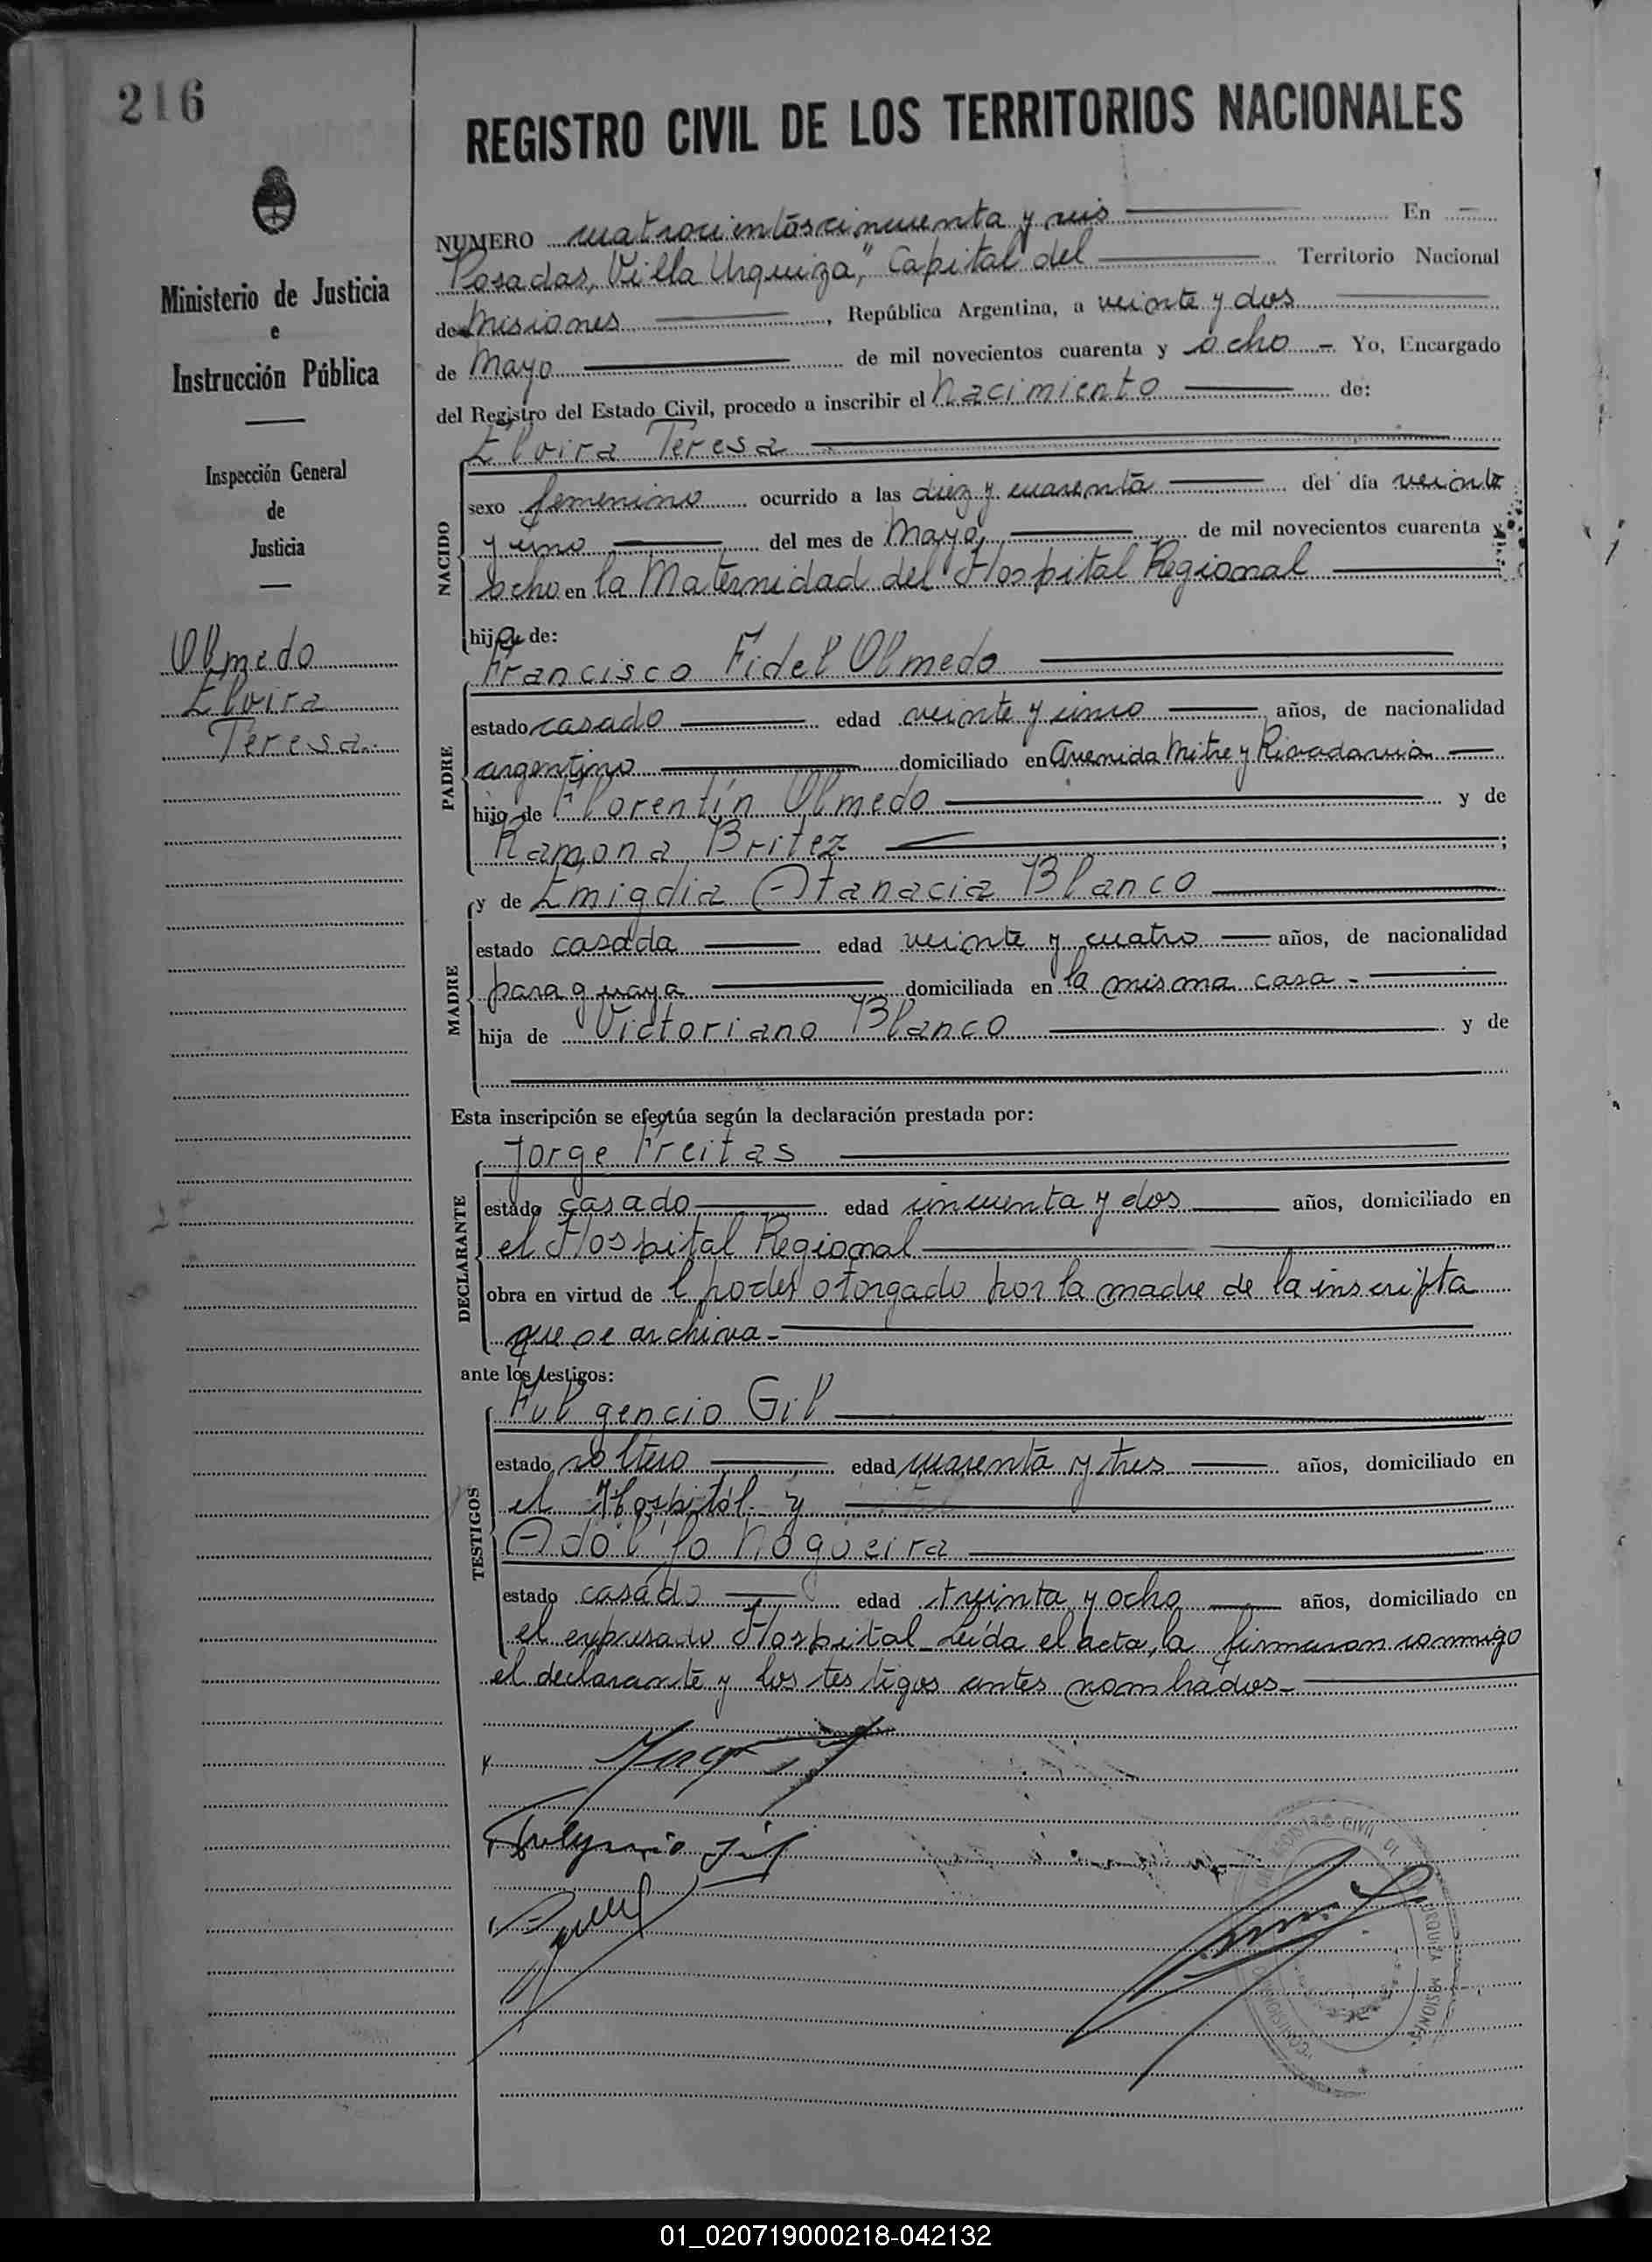 216
REGISTRO CIVIL DE LOS TERRITORIOS NACIONALES
Ministerio de Justicia
e
Instrucción Pública
Inspección General
de
Justicia
Olmedo
Elvira
Teresa
NUMERO cuatrocientos cincuenta y seis En
Posadas, Villa Urquiza," Capital del Territorio Nacional
de Misiones, República Argentina, a veinte y dos
de Mayo de mil novecientos cuarenta y ocho - Yo, Encargado
del Registro del Estado Civil, procedo a inscribir el Nacimiento de:
Elvira Teresa
NACIDO
sexo femenino ocurrido a las diez y cuarenta del día veinte
y uno del mes de Mayo, de mil novecientos cuarenta y
ocho en la Maternidad del Hospital Regional
hija de:
Francisco Fidel Olmedo
PADRE
estado casado edad veinte y cinco años, de nacionalidad
argentino domiciliado en Avenida Mitre y Rivadavia
hijo de Florentín Olmedo y de
Ramona Britez ;
y de Emigdia Atanacia Blanco
MADRE
estado casada edad veinte y cuatro años, de nacionalidad
paraguaya domiciliada en la misma casa -
hija de Victoriano Blanco y de
Esta inscripción se efectúa según la declaración prestada por:
Jorge Freitas
DECLARANTE
estado casado edad cincuenta y dos años, domiciliado en
el Hospital Regional
obra en virtud de l poder otorgado por la madre de la inscripta
que se archiva -
ante los testigos:
Fulgencio Gil
TESTIGOS
estado soltero edad cuarenta y tres años, domiciliado en
el Hospital y
Adolfo Nogueira
estado casado edad treinta y ocho años, domiciliado en
el expresado Hospital - Leída el acta, la firmaron conmigo
el declarante y los testigos antes nombrados -
Fulgencio Gil
REGISTRO CIVIL DE URQUIZA MISIONES
01_020719000218-042132